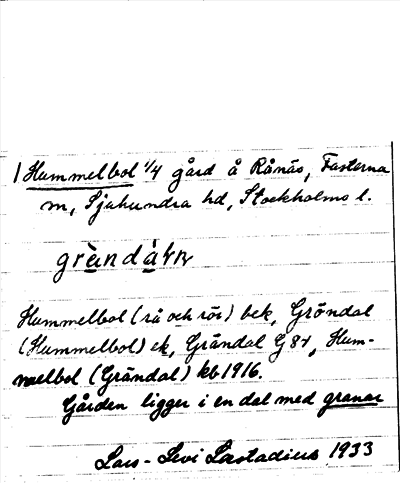 1 Hummelbol 1/4 gård å Rånäs, Fasterna
m, Sjuhundra hd, Stockholms l.
Hummelbol (rå och rör) bek, Gröndal
(Hummelbol) ek, Grändal G 8r, Hum-
melbol (Grändal) kb 1916.
Gården ligger i en dal med granar
Lars-Levi Læstadius 1933